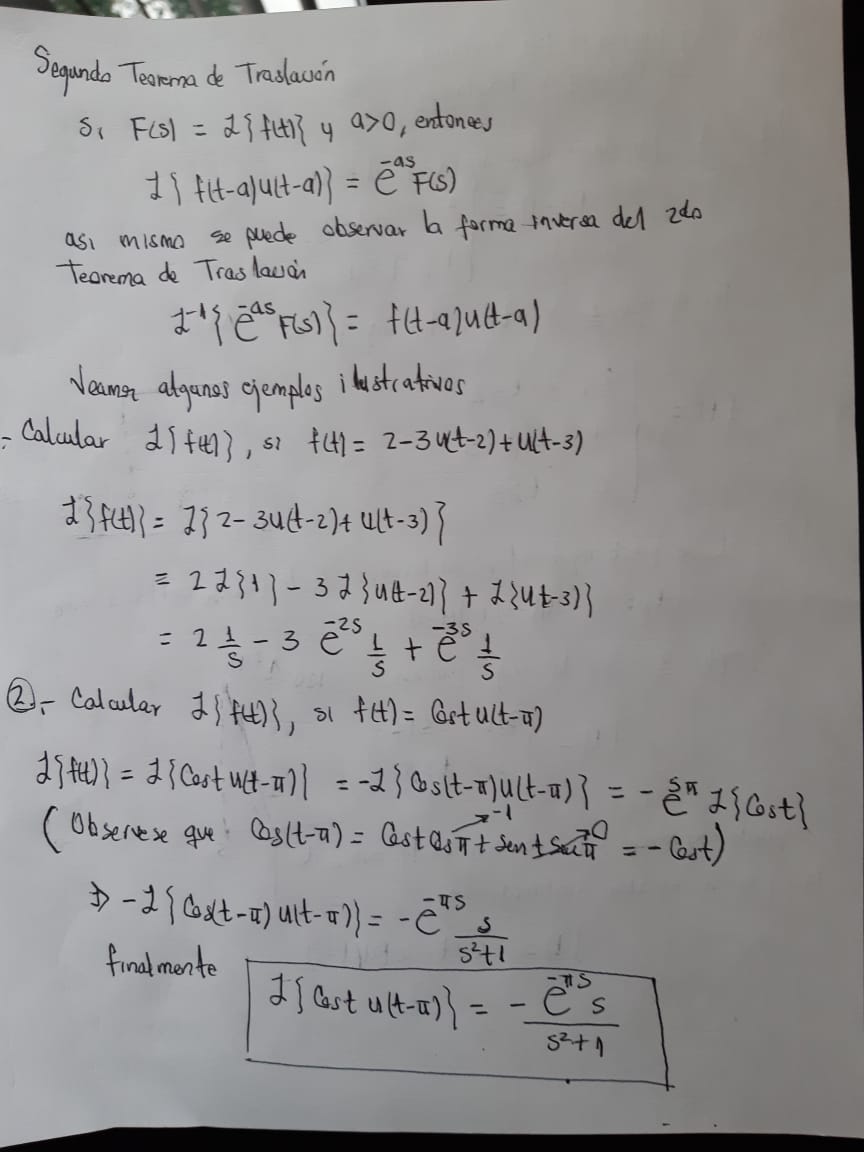 Segundo Teorema de Traslación
Si F(s) = ℒ{f(t)} y a>0, entonces
ℒ{f(t-a)u(t-a)} = e^{-as} F(s)
asi mismo se puede observar la forma inversa del 2do
Teorema de Traslación
ℒ^{-1}{e^{-as} F(s)} = f(t-a)u(t-a)
Veamos algunos ejemplos ilustrativos
.- Calcular ℒ{f(t)}, si f(t) = 2-3u(t-2)+u(t-3)
ℒ{f(t)} = ℒ{2-3u(t-2)+u(t-3)}
= 2ℒ{1} - 3ℒ{u(t-2)} + ℒ{ut-3)}
= 2 1/s - 3 e^{-2s} 1/s + e^{-3s} 1/s
②.- Calcular ℒ{f(t)}, si f(t) = Cost u(t-π)
ℒ{f(t)} = ℒ{Cost u(t-π)} = -ℒ{Cos(t-π)u(t-π)} = - e^{-sπ} ℒ{Cost}
(Observese que Cos(t-π) = Cost Cosπ → -1 + sent senπ → 0 = - Cost)
⇒ -ℒ{Cos(t-π)u(t-π)} = -e^{-πs} s/(s²+1)
finalmente
ℒ{Cost u(t-π)} = - e^{-πs} s/(s²+1)